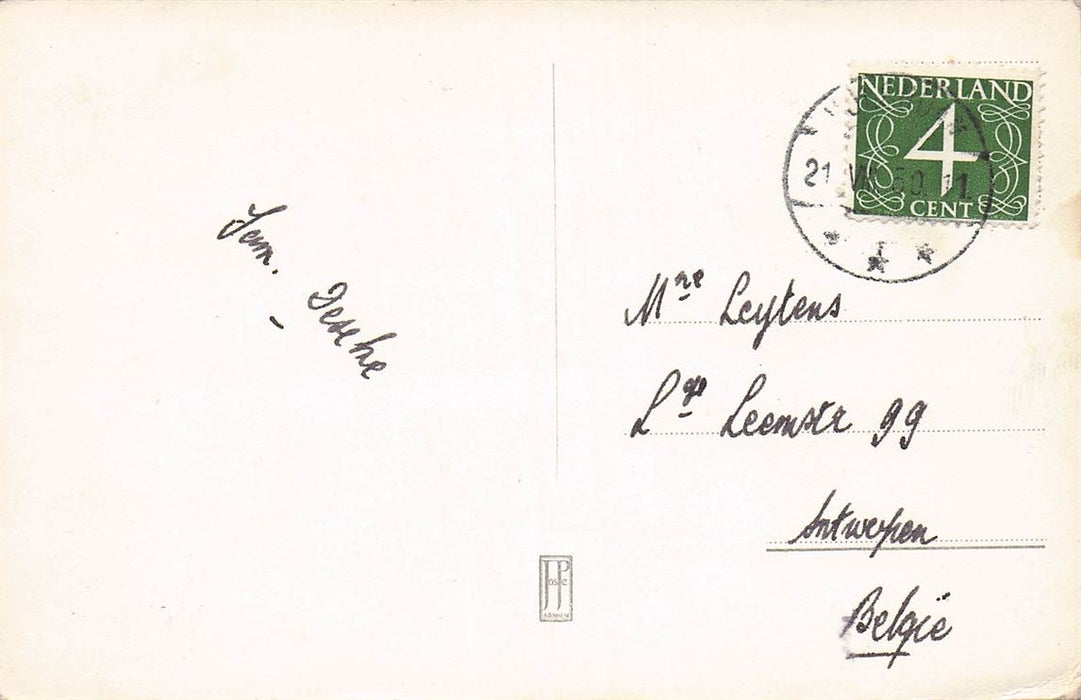 Fam.
NEDERLAND
4
CENT
21 VII 50. 11
Mre Leytens
Lge Leemstr 99
Antwerpen
België
JosPe
ARNHEM